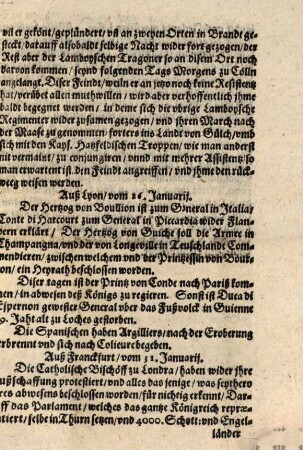 vil er gekönt/geplündert/vñ an zweyen Orten in Brandt ge-
steckt/darauff alsobaldt selbige Nacht wider fort gezogen/der
Rest aber der Lamboyschen Tragoner so an disem Ort noch
darvon kommen/seynd folgenden Tags Morgens zu Cölln
angelangt. Diser Feindt/weiln er an jetzo noch keine Resistentz
hat/verübet allen muthwillen/wird aber verhoffentlich jhme
baldt begegnet werden/in deme sich die vbrige Lamboysche
Regimenter wider zusamen gezogen/vnd jhren March nach
der Maase zu genommen/forters ins Landt von Gülch/vmb
sich mit den Kays. Hatzfeldischen Troppen/wie man anderst
nit vermaint/zu conjungiren/vnnd mit mehrer Assistentz so
man erwartet ist.den Feindt angreiffen/vnd jhme den rück-
weeg weisen werden.
Auß Lyon/vom 26. Januarij.
Der Hertzog von Boullion ist zum General in Italia/
Conte di Harcourt zum General in Piccardia wider Flan-
dern erklärt/ Der Hertzog von Guiche soll die Armee in
Champangna/vnd der von Longeville in Teutschlande Com-
mendieren/zwischen welchem vnd der Printzessin von Bour-
bon/ein Heyrath beschlossen worden.
Diser tagen ist der Printz von Conde nach Pariß kom-
men/in abwesen deß Königs zu regieren. Sonst ist Duca di
Espernon gewester General vber das Fußvolck in Guienne
9. Jahr alt zu Loches gestorben.
Die Spanischen haben Argilliers/nach der Eroberung
verbrennt vnd sich nach Colieure begeben.
Auß Franckfurt/vom 31. Januarij.
Die Catholische Bischöff zu Londra/haben wider jhre
Außschaffung protestiert/vnd alles das jenige/was septhero
jres abwesens beschlossen worden/für nichtig erkennt/Dar-
auff das Parlament/welches das gantze Königreich repræ-
sentiert/selbe in Thurn setzen/vnd 4000. Schott:vnd Engel-
länder